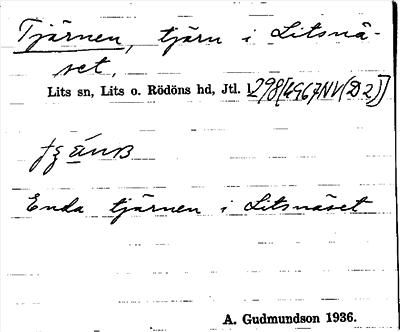 Tjärnen, tjärn i Litsnä-
set.
Lits sn, Lits o. Rödöns hd, Jtl.
Enda tjärnen i Litsnäset
A. Gudmundson 1936.